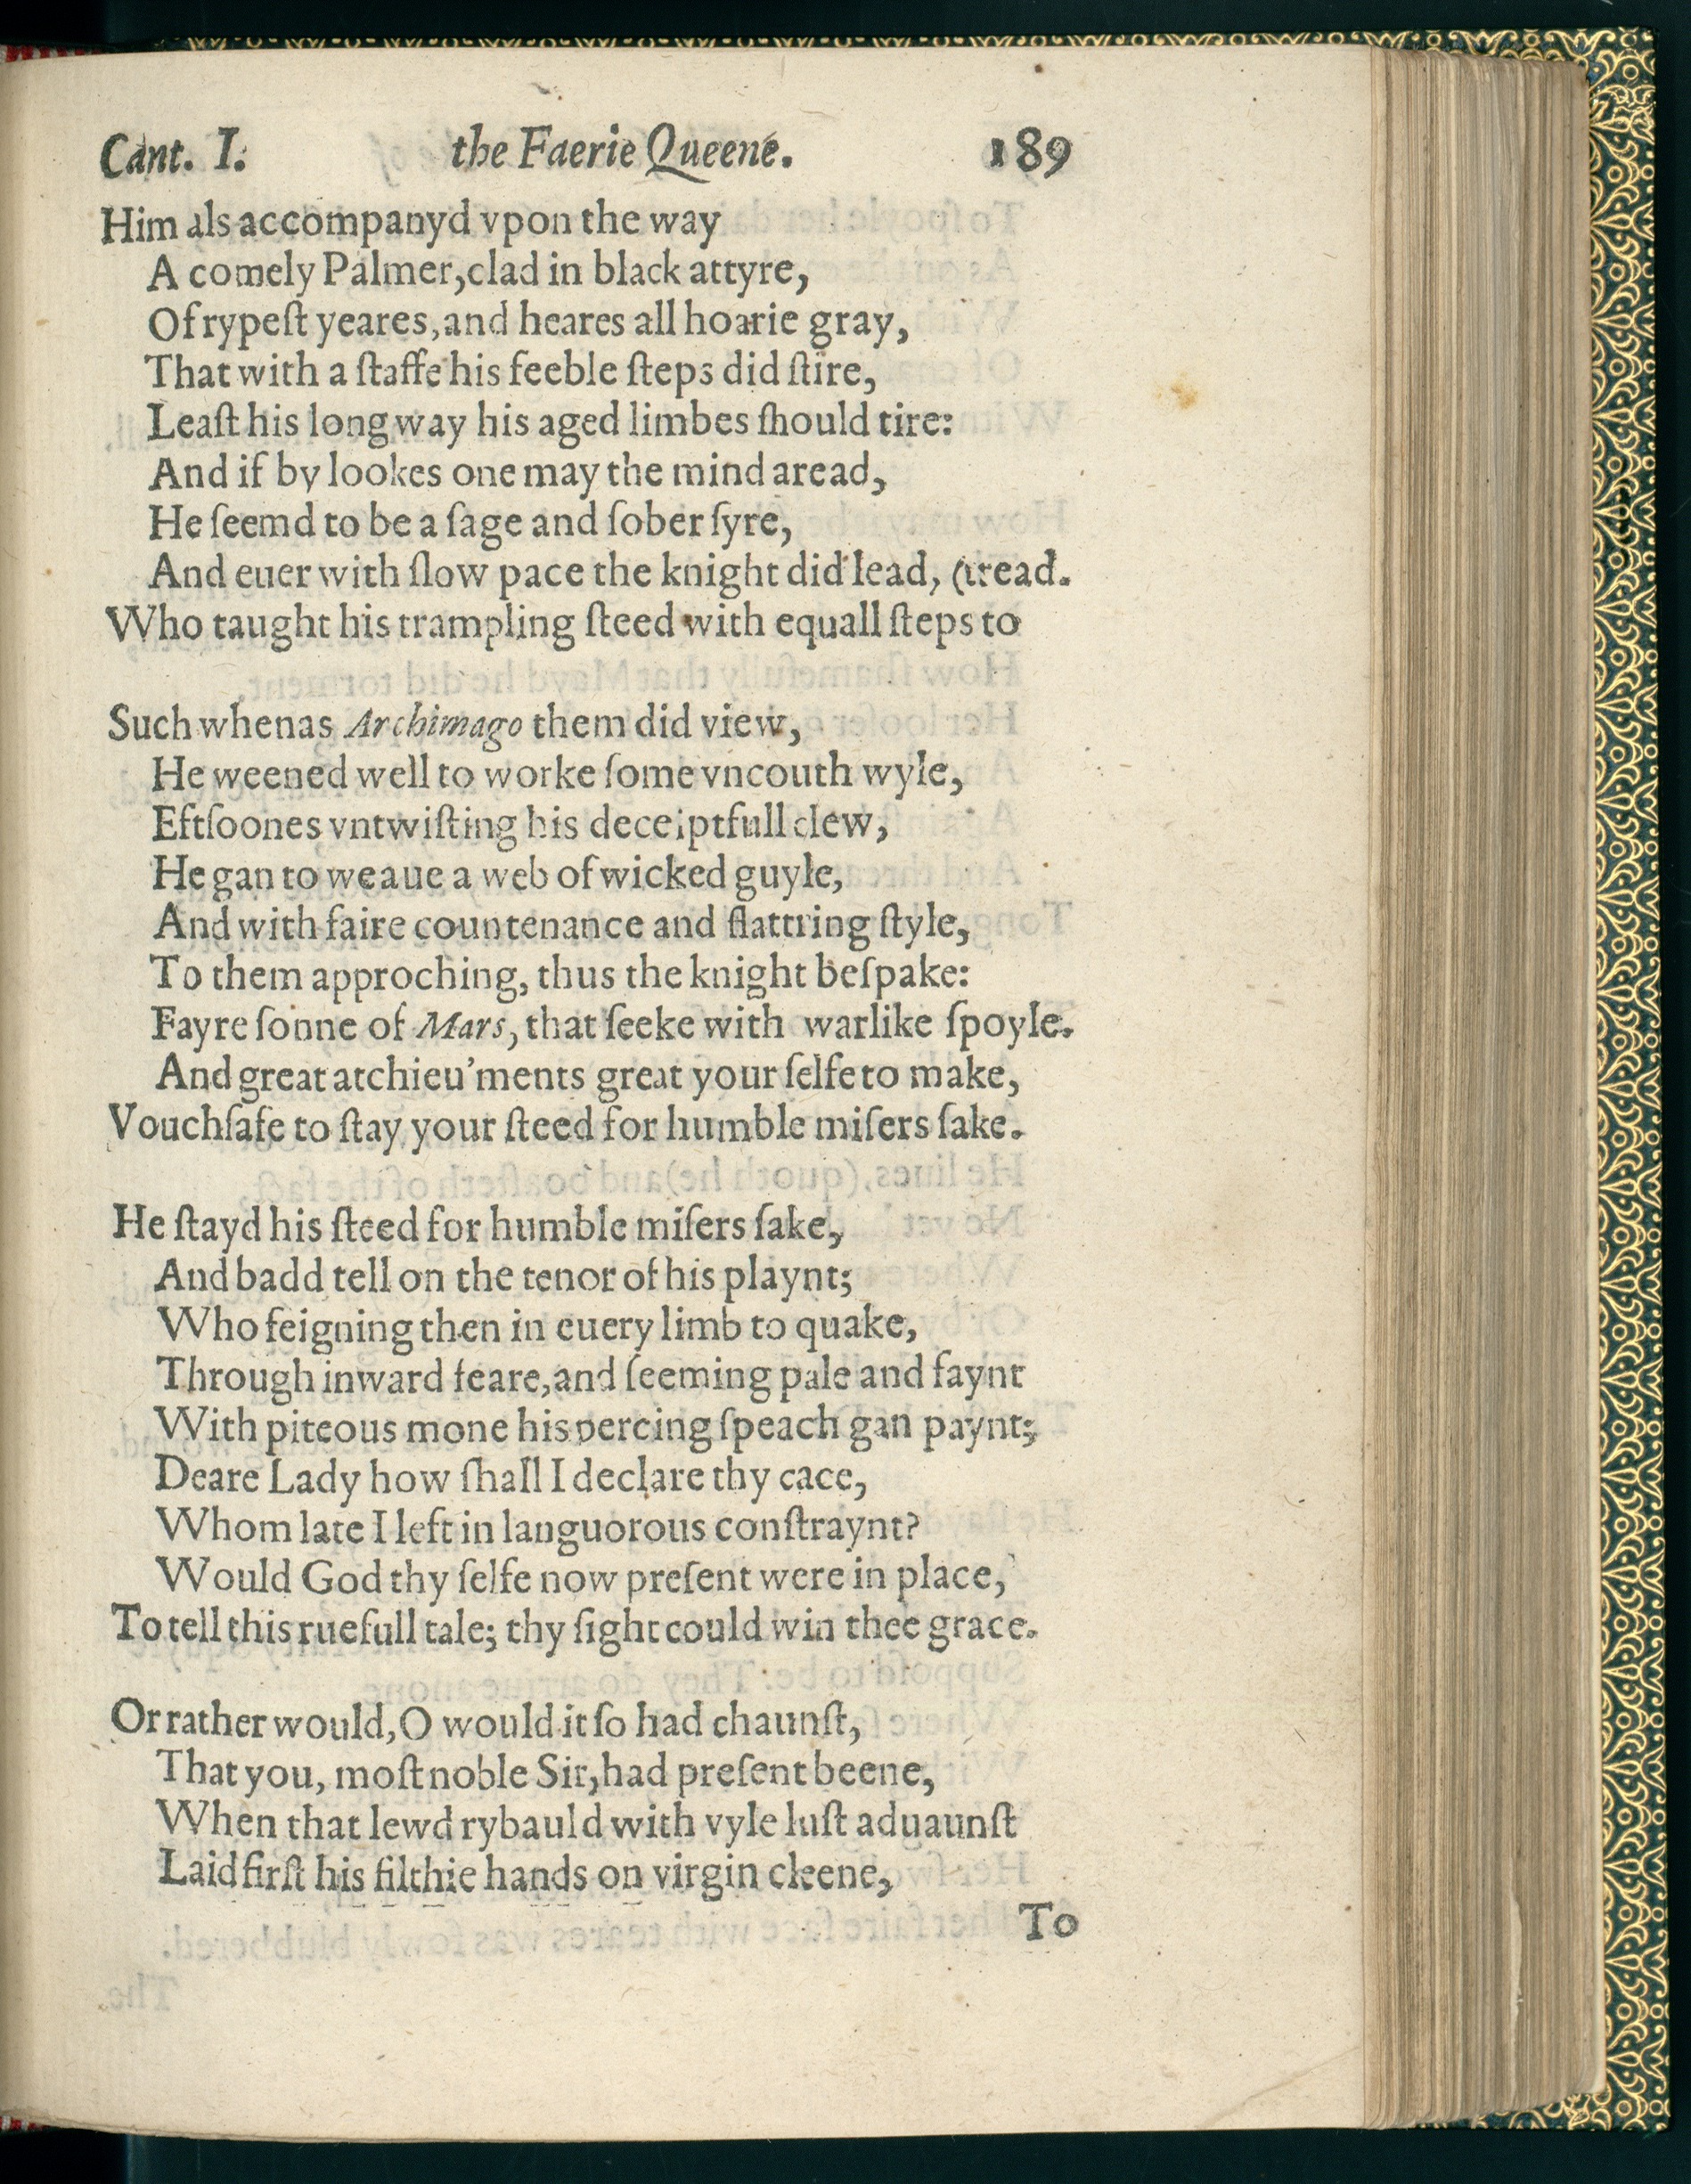 Cant. I. the Faerie Queene. 189
Him als accompanyd vpon the way
A comely Palmer, clad in black attyre,
Of rypeſt yeares, and heares all hoarie gray,
That with a ſtaffe his feeble ſteps did ſtire,
Leaſt his long way his aged limbes ſhould tire:
And if by lookes one may the mind aread,
He ſeemd to be a ſage and ſober ſyre,
And euer with ſlow pace the knight did lead, (tread.
Who taught his trampling ſteed with equall ſteps to
Such whenas Archimago them did view,
He weened well to worke ſome vncouth wyle,
Eftſoones vntwiſting his deceiptfull clew,
He gan to weaue a web of wicked guyle,
And with faire countenance and flattring ſtyle,
To them approching, thus the knight beſpake:
Fayre ſonne of Mars, that ſeeke with warlike ſpoyle.
And great atchieu'ments great your ſelfe to make,
Vouchſafe to ſtay your ſteed for humble miſers ſake.
He ſtayd his ſteed for humble miſers ſake,
And badd tell on the tenor of his playnt;
Who feigning then in euery limb to quake,
Through inward feare, and ſeeming pale and faynt
With piteous mone his percing ſpeach gan paynt;
Deare Lady how ſhall I declare thy cace,
Whom late I left in languorous conſtraynt?
Would God thy ſelfe now preſent were in place,
To tell this ruefull tale; thy ſight could win thee grace.
Or rather would, O would it ſo had chaunſt,
That you, moſt noble Sir, had preſent beene,
When that lewd rybauld with vyle luſt aduaunſt
Laid firſt his filthie hands on virgin cleene,
To